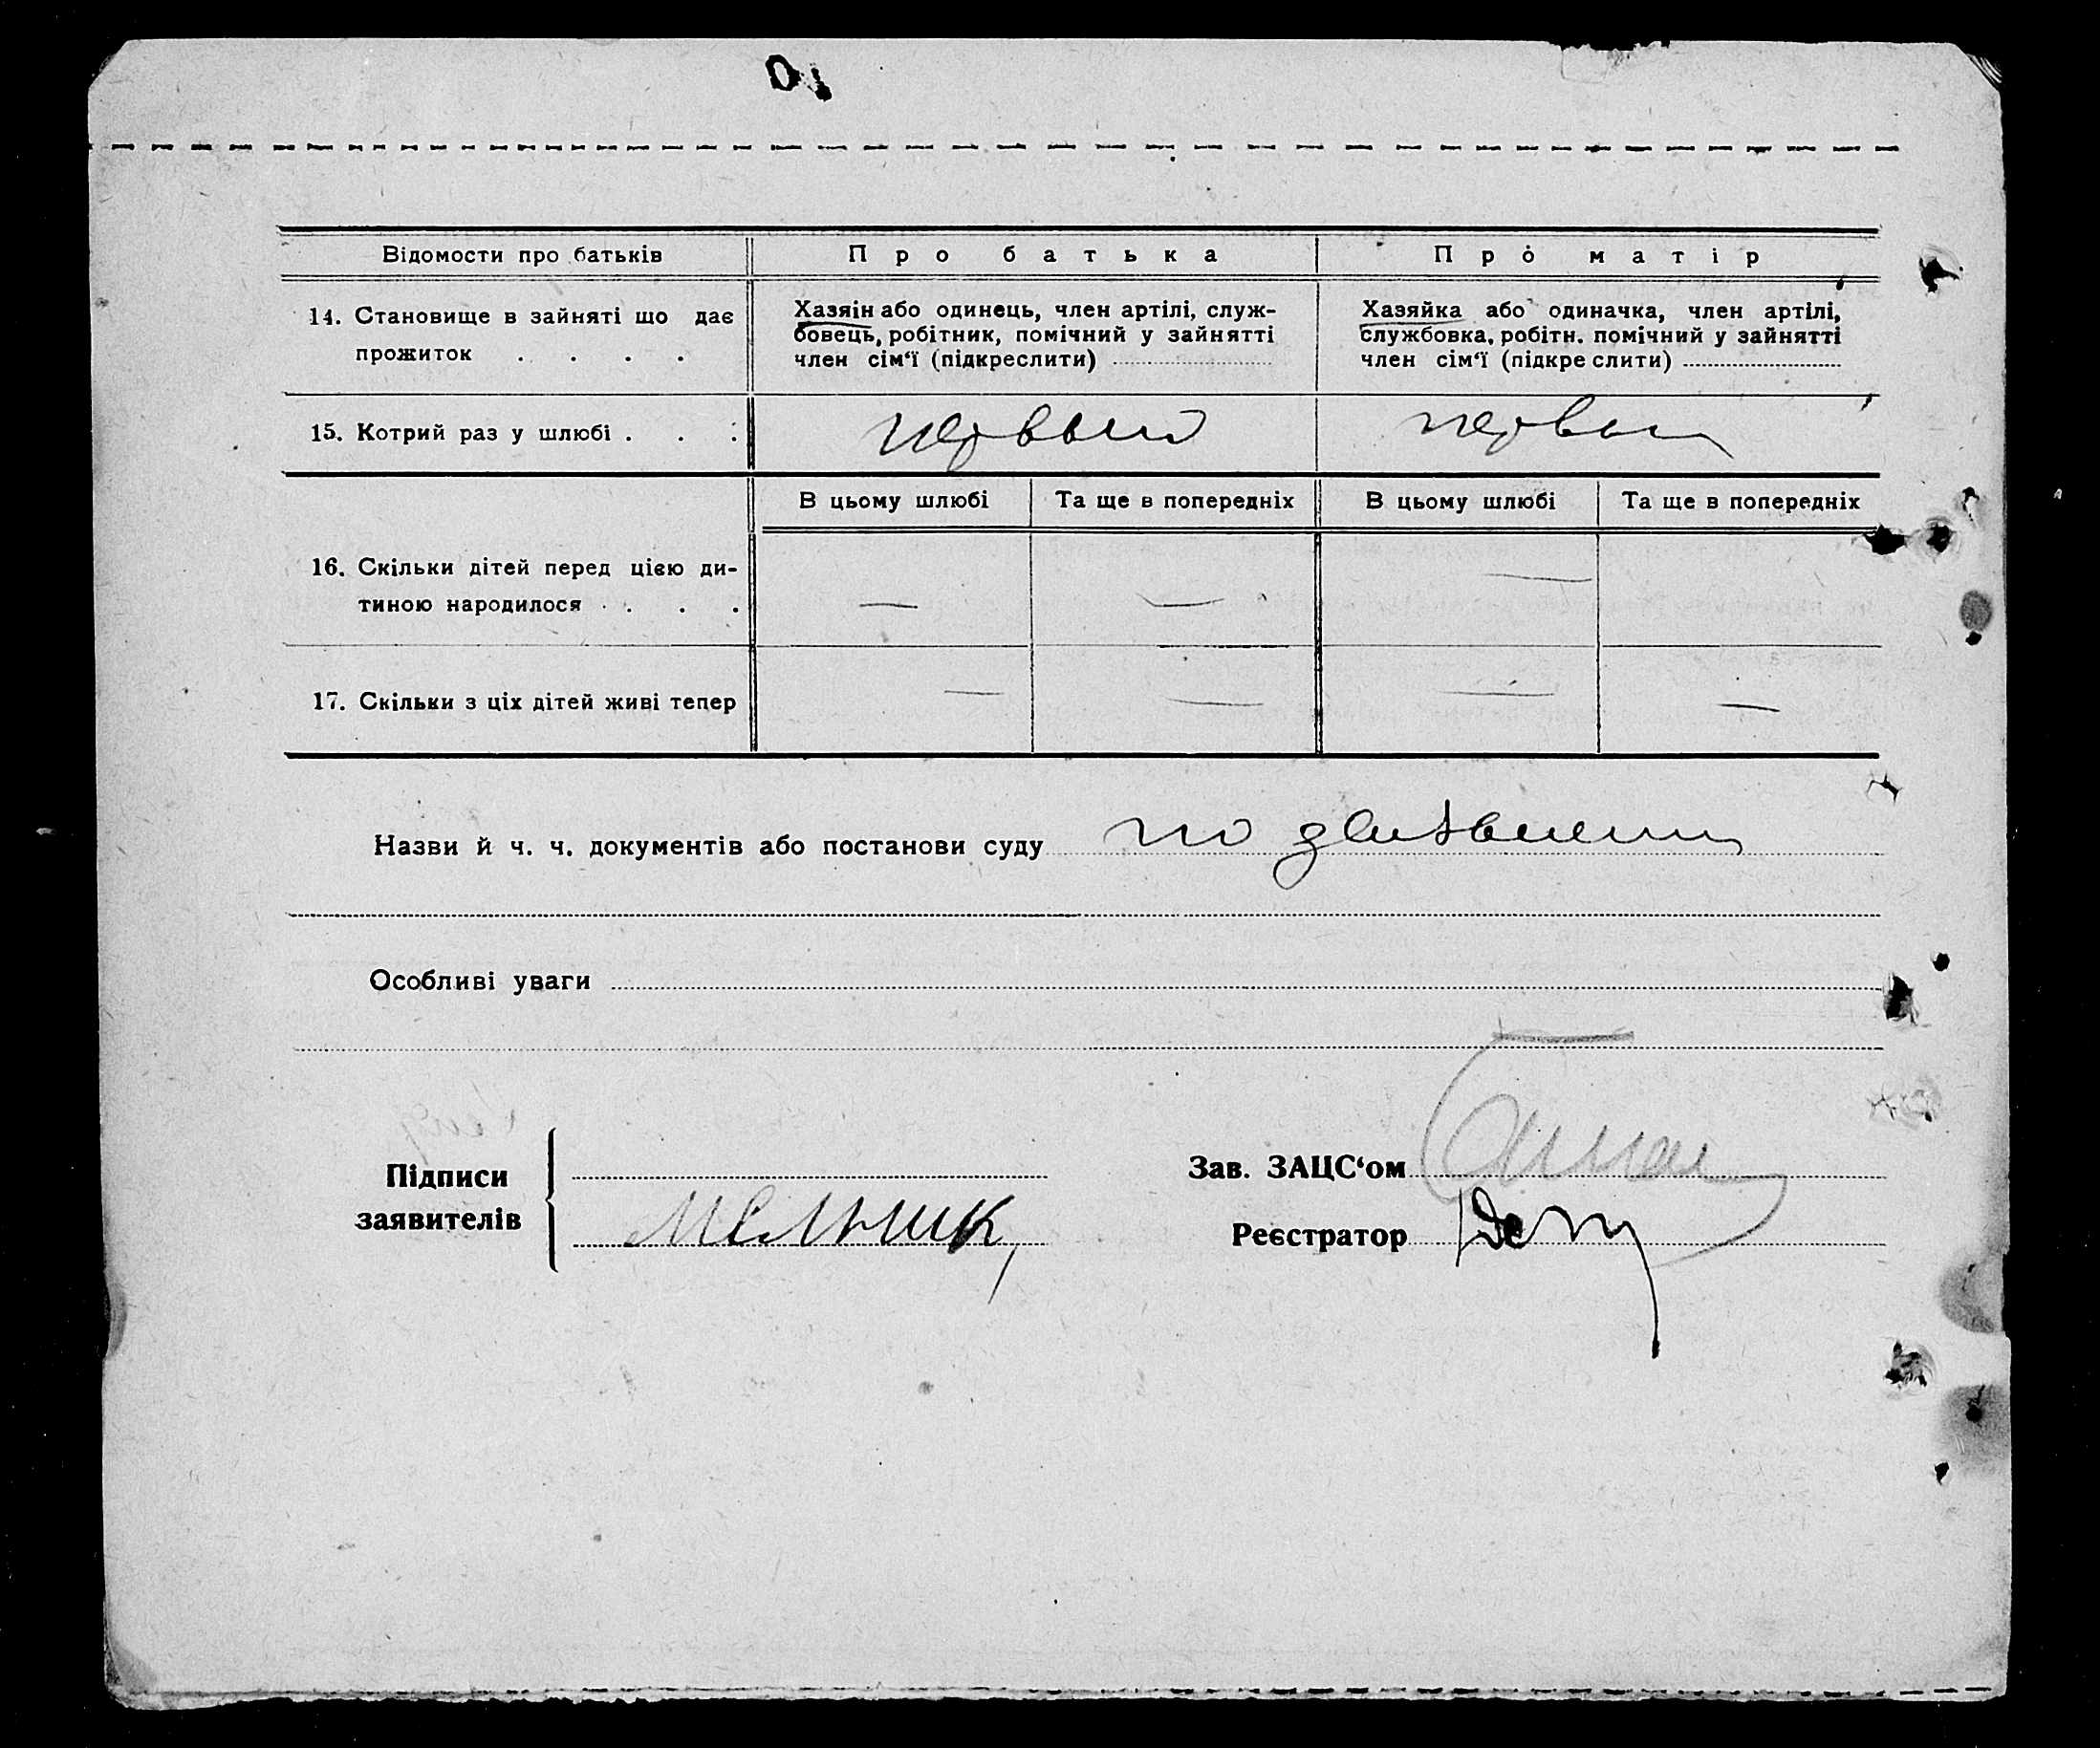 Відомости про батьків Про батька Про матір
14. Становище в зайняті що дає
прожиток . . . .
Хазяін або одинець, член артілі, служ-
бовець, робітник, помічний у зайнятті
член сім‘ї (підкреслити)
Хазяйка або одиначка, член артілі,
службовка, робітн. помічний у зайнятті
член сім‘ї (підкреслити)
15. Котрий раз у шлюбі . . . первый первый
В цьому шлюбі Та ще в попередніх В цьому шлюбі Та ще в попередніх
16. Скільки дітей перед цією ди-
тиною народилося . . . . — — —
17. Скільки з ціх дітей живі тепер — — — —
Назви й ч. ч. документів або постанови суду по
Особливі уваги
Підписи
заявителів
Мельник
Зав. ЗАЦС‘ом
Реєстратор